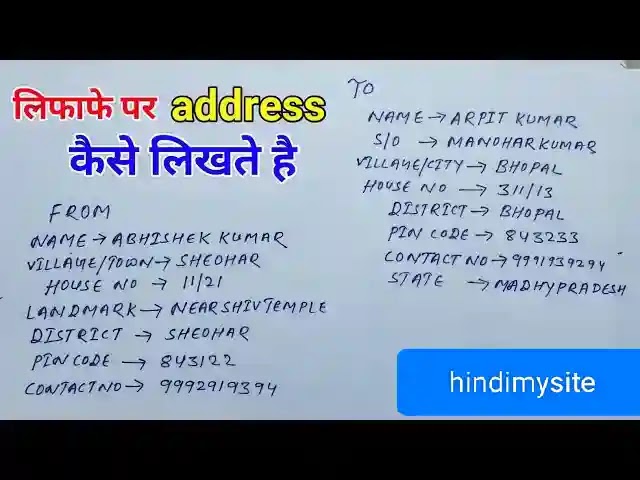 लिफाफे पर address
कैसे लिखते है
FROM
NAME → ABHISHEK KUMAR
VILLAGE/TOWN → SHEOHAR
HOUSE NO → 11/21
LANDMARK → NEAR SHIV TEMPLE
DISTRICT → SHEOHAR
PIN CODE → 843122
CONTACT NO → 9992919394
TO
NAME → ARPIT KUMAR
S/O → MANOHAR KUMAR
VILLAGE/CITY → BHOPAL
HOUSE NO → 311/13
DISTRICT → BHOPAL
PIN CODE → 843233
CONTACT NO → 9991939294
STATE → MADHYPRADESH
hindimysite